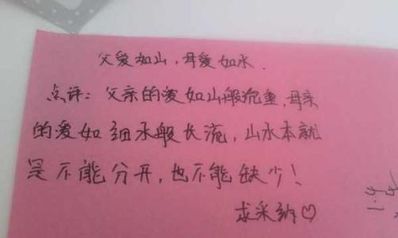 父爱如山，母爱如水．
点评：父亲的爱如山般沉重，母亲
的爱如细水般长流，山水本就
是不能分开，也不能缺少！
求采纳♡